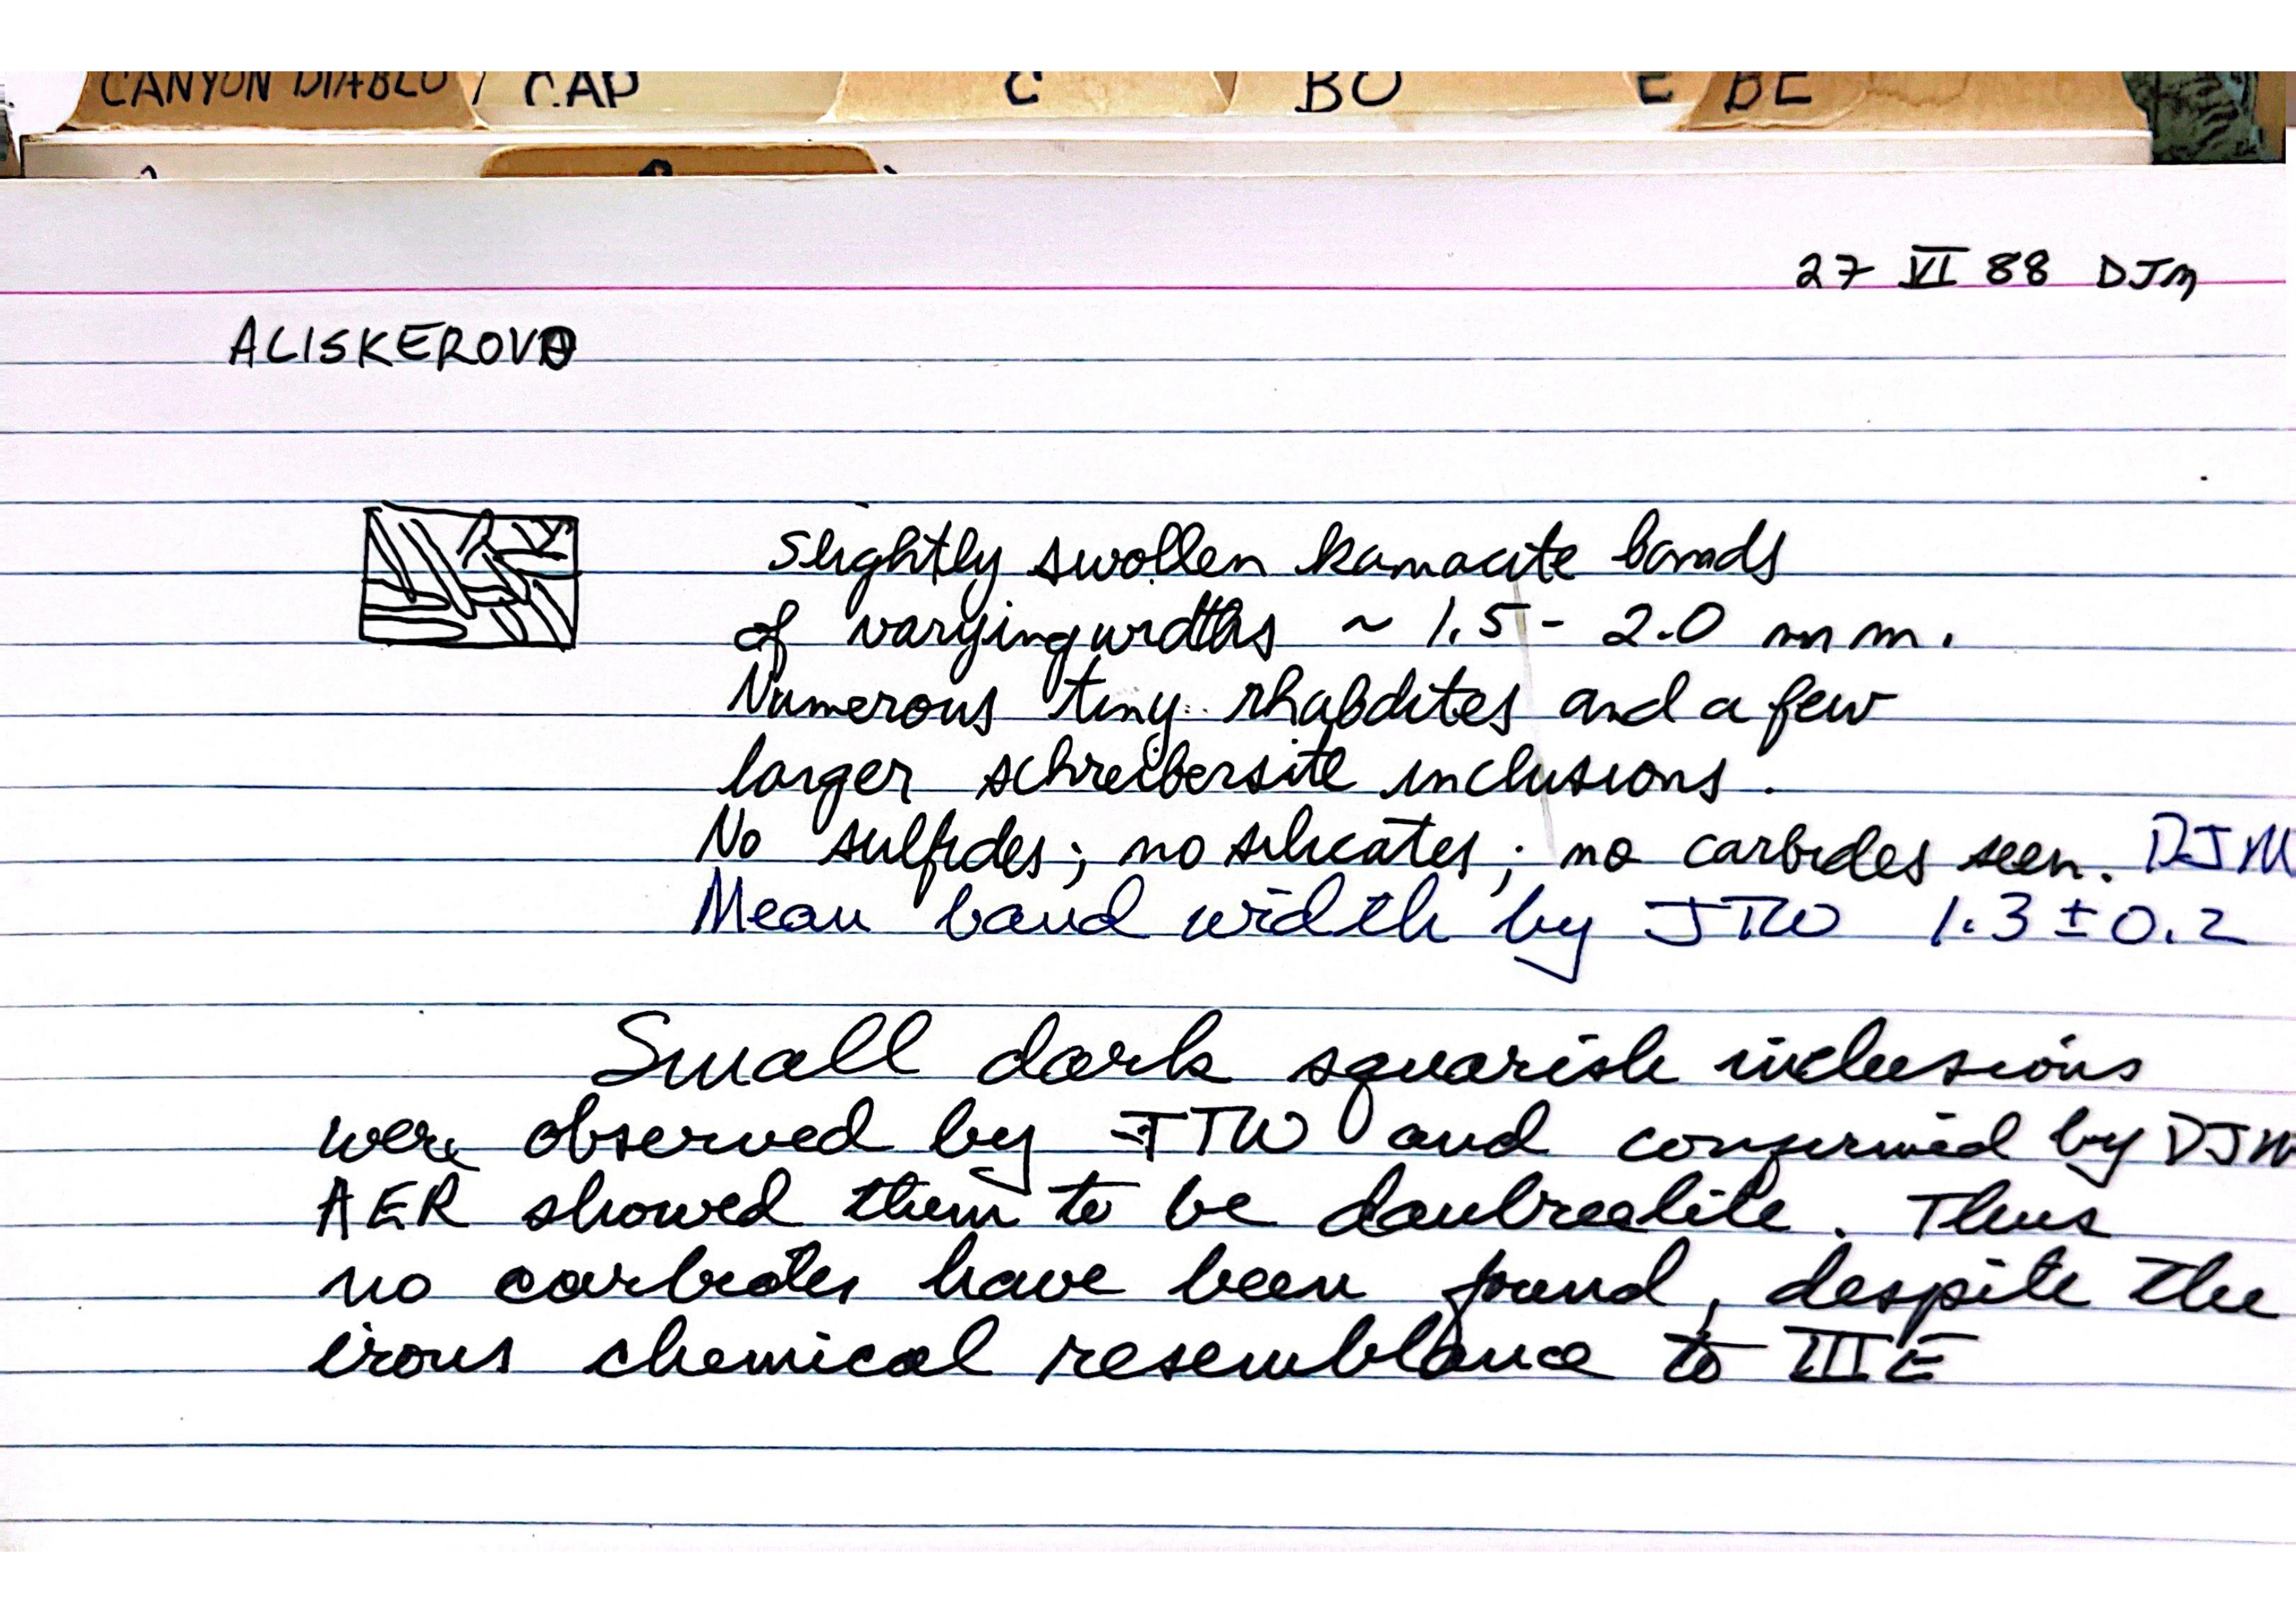 CANYON DIABLO CAP C BO E BE
27 VI 88 DJM
ALISKEROVO
slightly swollen kamacite bands
of varying widths ~ 1.5 - 2.0 mm.
Numerous tiny rhabdites and a few
larger schreibersite inclusions.
No sulfides; no silicates; no carbides seen. DJM
Mean band width by JTW 1.3 ± 0.2
Small dark squarish inclusions
were observed by JTW and confirmed by DJM
AER showed them to be daubreelite. Thus
no have been found, despite the
irons chemical resemblance to IIIE